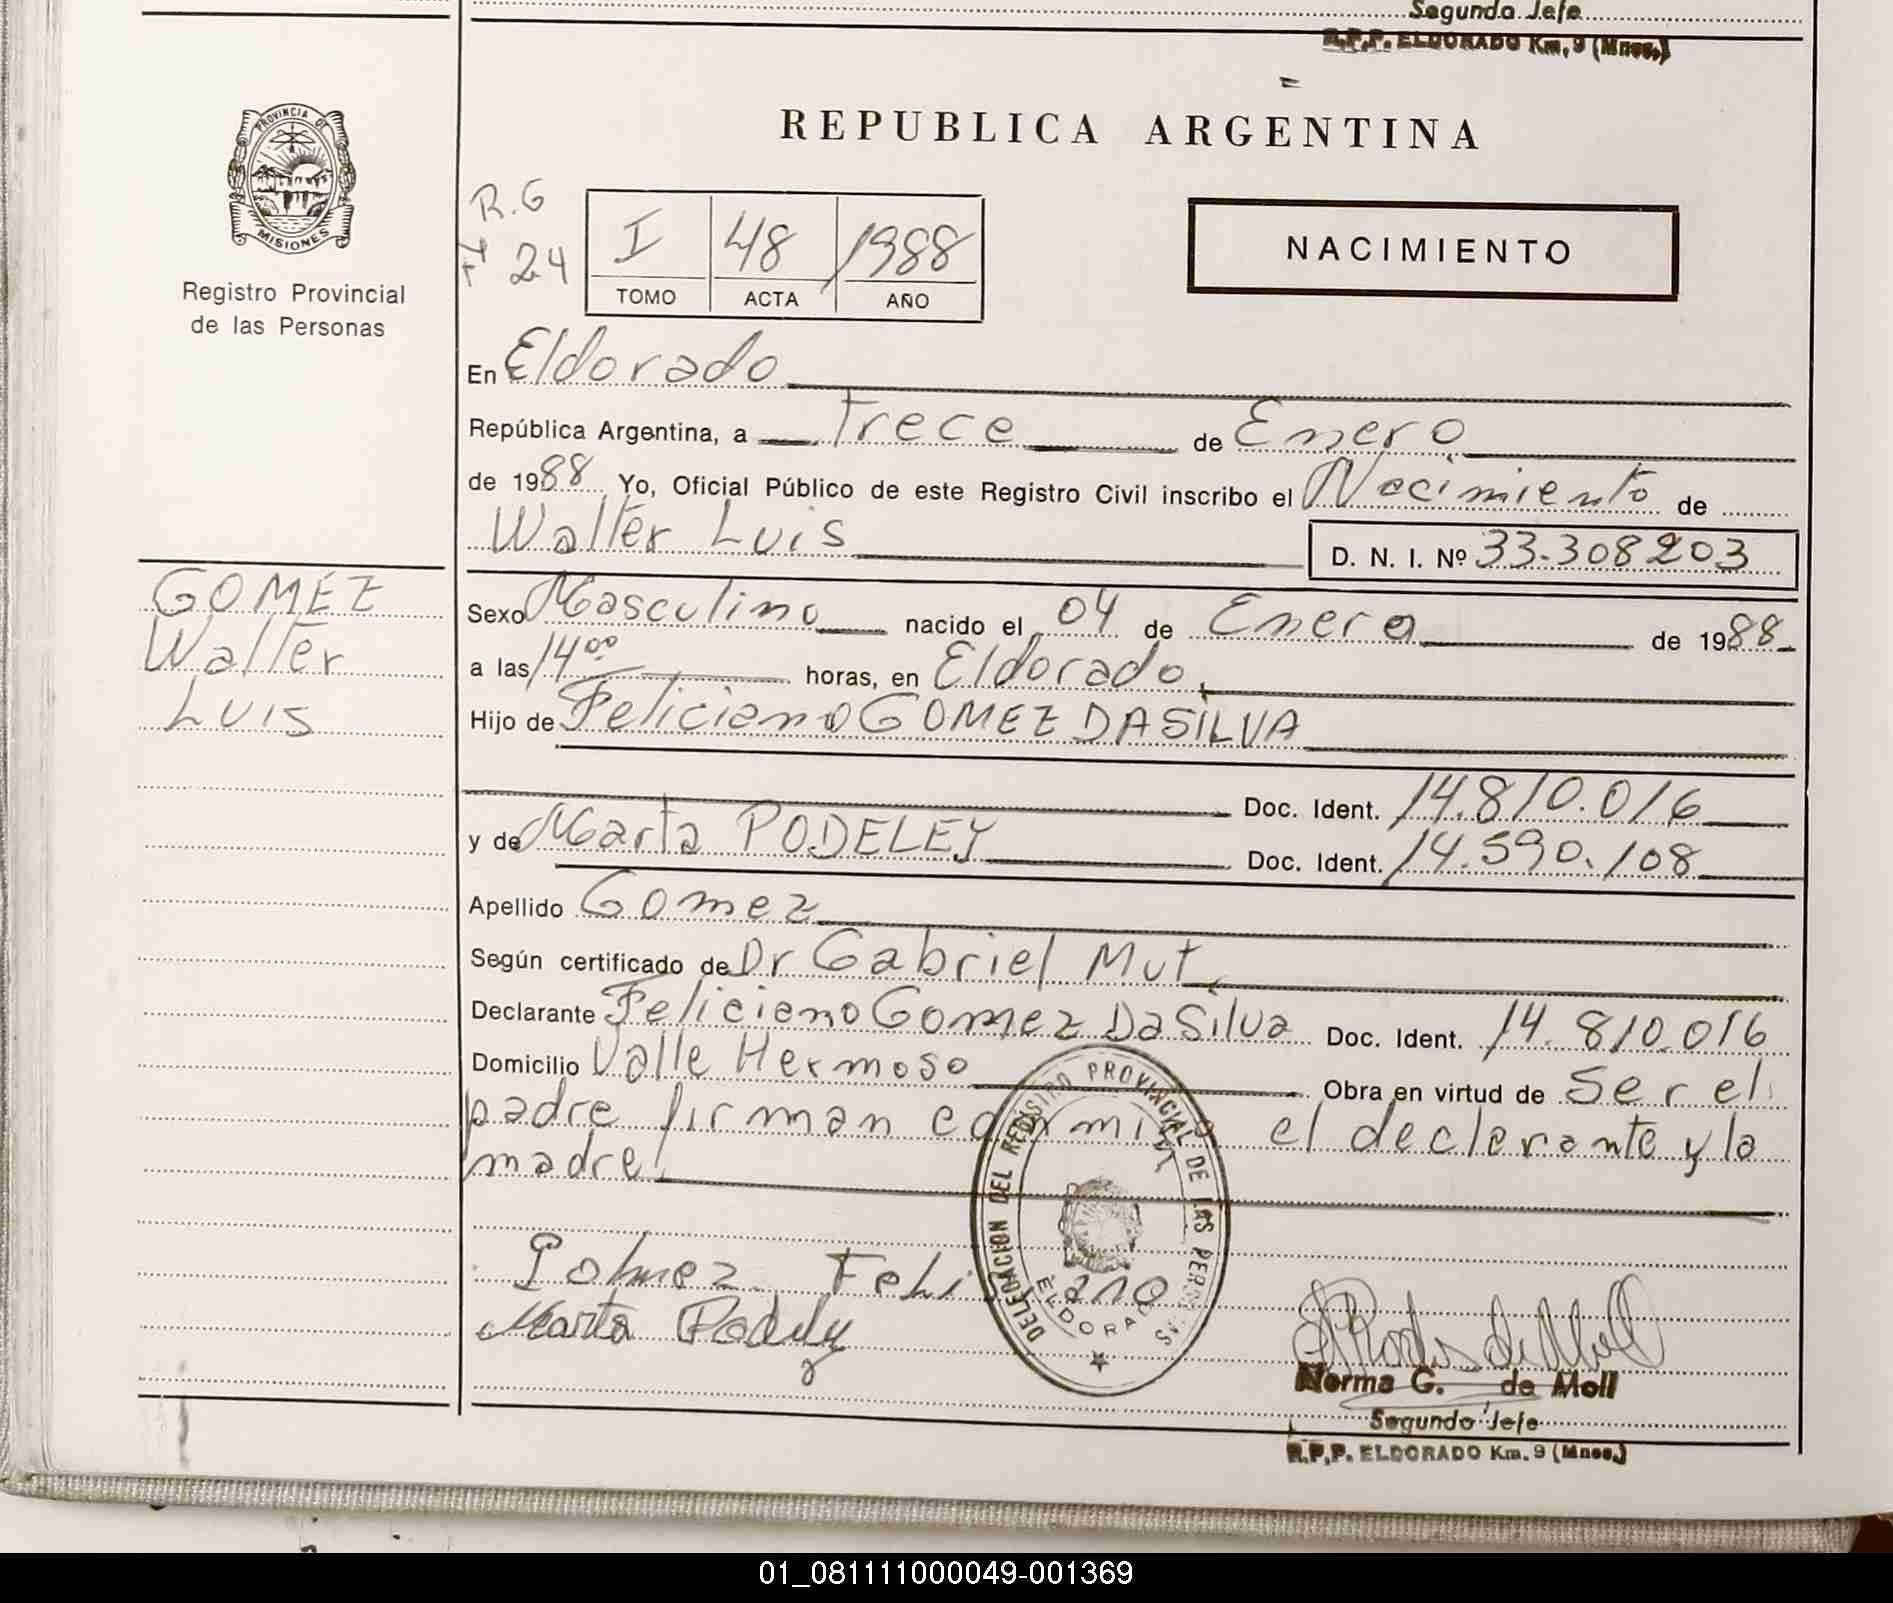 Segundo Jefe
R.P.P. ELDORADO Km. 9 (Mnes.)
REPUBLICA ARGENTINA
PROVINCIA DE
MISIONES
Registro Provincial
de las Personas
R.G
24
I 48 1988
TOMO ACTA AÑO
NACIMIENTO
En Eldorado
República Argentina, a Trece de Enero
de 1988 Yo, Oficial Público de este Registro Civil inscribo el Nacimiento de
Walter Luis D. N. I. Nº 33.308203
GOMEZ
Walter
Luis
Sexo Masculino nacido el 04 de Enero de 1988
a las 14⁰⁰ horas, en Eldorado
Hijo de Feliciano GOMEZ DA SILVA
Doc. Ident. 14.810.016
y de Marta PODELEY Doc. Ident. 14.590.108
Apellido Gomez
Según certificado de Dr Gabriel Mut
Declarante Feliciano Gomez Da Silva Doc. Ident. 14.810.016
Domicilio Valle Hermoso Obra en virtud de Ser el
padre firman conmigo el declarante y la
madre
DELEGACION DEL REGISTRO PROVINCIAL DE LAS PERSONAS
ELDORADO
Feliciano
Marta Podeley
Norma G. de Moll
Segundo Jefe
R.P.P. ELDORADO Km. 9 (Mnes.)
01_081111000049-001369